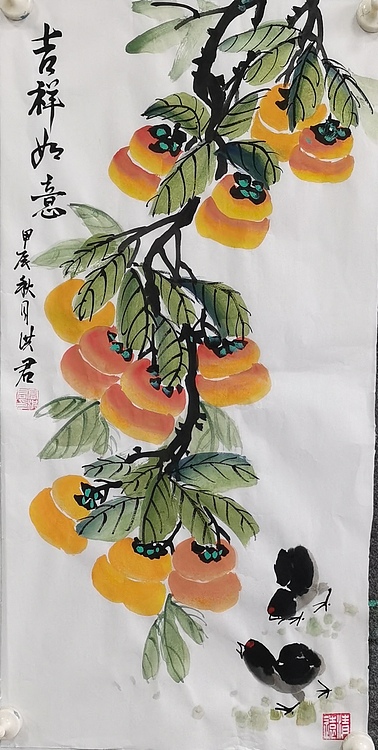 吉祥如意
甲辰秋月洪君